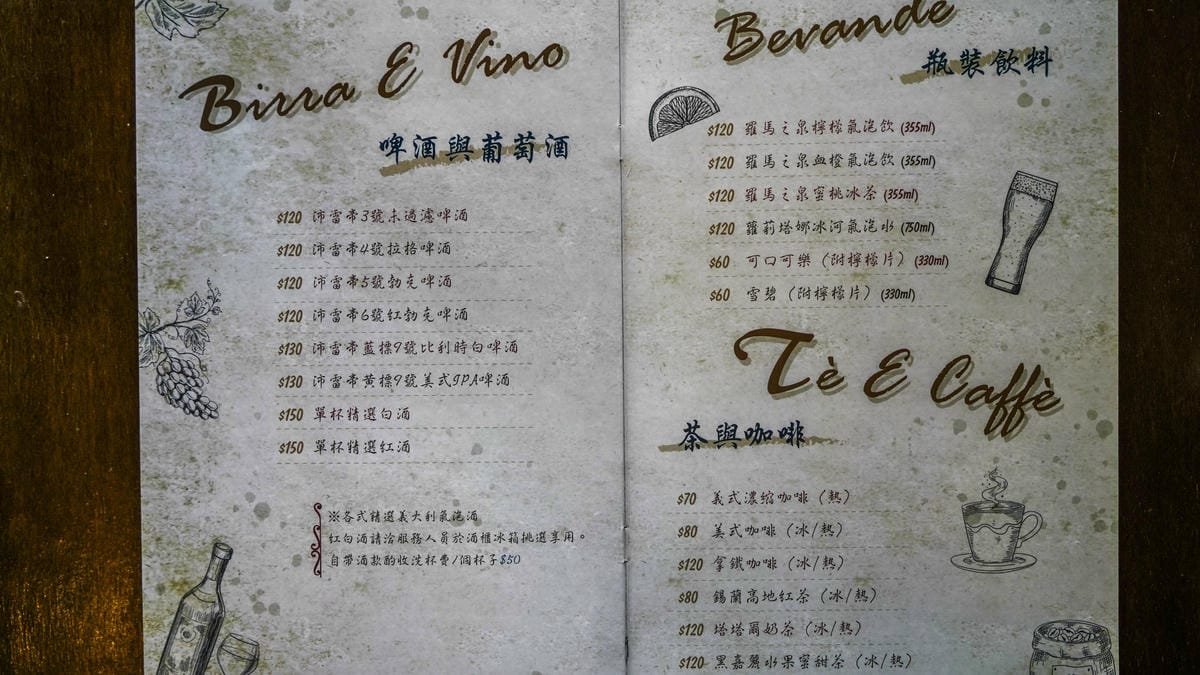 Birra E Vino
啤酒與葡萄酒
$120 沛雷帝3號未過濾啤酒
$120 沛雷帝4號拉格啤酒
$120 沛雷帝5號勃克啤酒
$120 沛雷帝6號紅勃克啤酒
$130 沛雷帝藍標9號比利時白啤酒
$130 沛雷帝黃標9號美式IPA啤酒
$150 單杯精選白酒
$150 單杯精選紅酒
※各式精選義大利氣泡酒
紅白酒請洽服務人員於酒櫃冰箱挑選享用。
自帶酒款酌收洗杯費/個杯子$50
Bevande
瓶裝飲料
$120 羅馬之泉檸檬氣泡飲 (355ml)
$120 羅馬之泉血橙氣泡飲 (355ml)
$120 羅馬之泉蜜桃冰茶 (355ml)
$120 蘿莉塔娜冰河氣泡水 (750ml)
$60 可口可樂（附檸檬片）(330ml)
$60 雪碧（附檸檬片）(330ml)
Tè E Caffè
茶與咖啡
$70 義式濃縮咖啡（熱）
$80 美式咖啡（冰/熱）
$120 拿鐵咖啡（冰/熱）
$80 錫蘭高地紅茶（冰/熱）
$120 塔塔爾奶茶（冰/熱）
$120 黑嘉麗水果蜜甜茶（冰/熱）